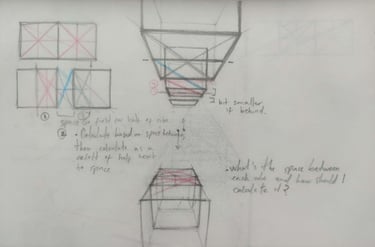 but smaller
if behind.
① ②
space or first or half of cube
② - Calculate based on space behind,
then calculate as a
result of half next
to space
- What's the space between
each cube and how should I
calculate it?